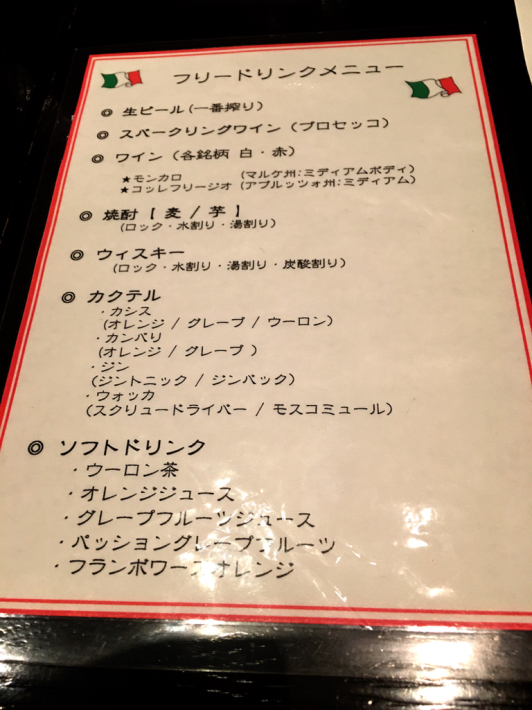 フリードリンクメニュー
◎ 生ビール(一番搾り)
◎ スパークリングワイン (プロセッコ)
◎ ワイン (各銘柄 白・赤)
★モンカロ (マルケ州:ミディアムボディ)
★コッレフリージオ (アブルッツォ州:ミディアム)
◎ 焼酎 【 麦 / 芋 】
(ロック・水割り・湯割り)
◎ ウィスキー
(ロック・水割り・湯割り・炭酸割り)
◎ カクテル
・カシス
(オレンジ / グレープ / ウーロン)
・カンパリ
(オレンジ / グレープ )
・ジン
(ジントニック / ジンバック)
・ウォッカ
(スクリュードライバー / モスコミュール)
◎ ソフトドリンク
・ウーロン茶
・オレンジジュース
・グレープフルーツジュース
・パッショングレープフルーツ
・フランボワーズオレンジ